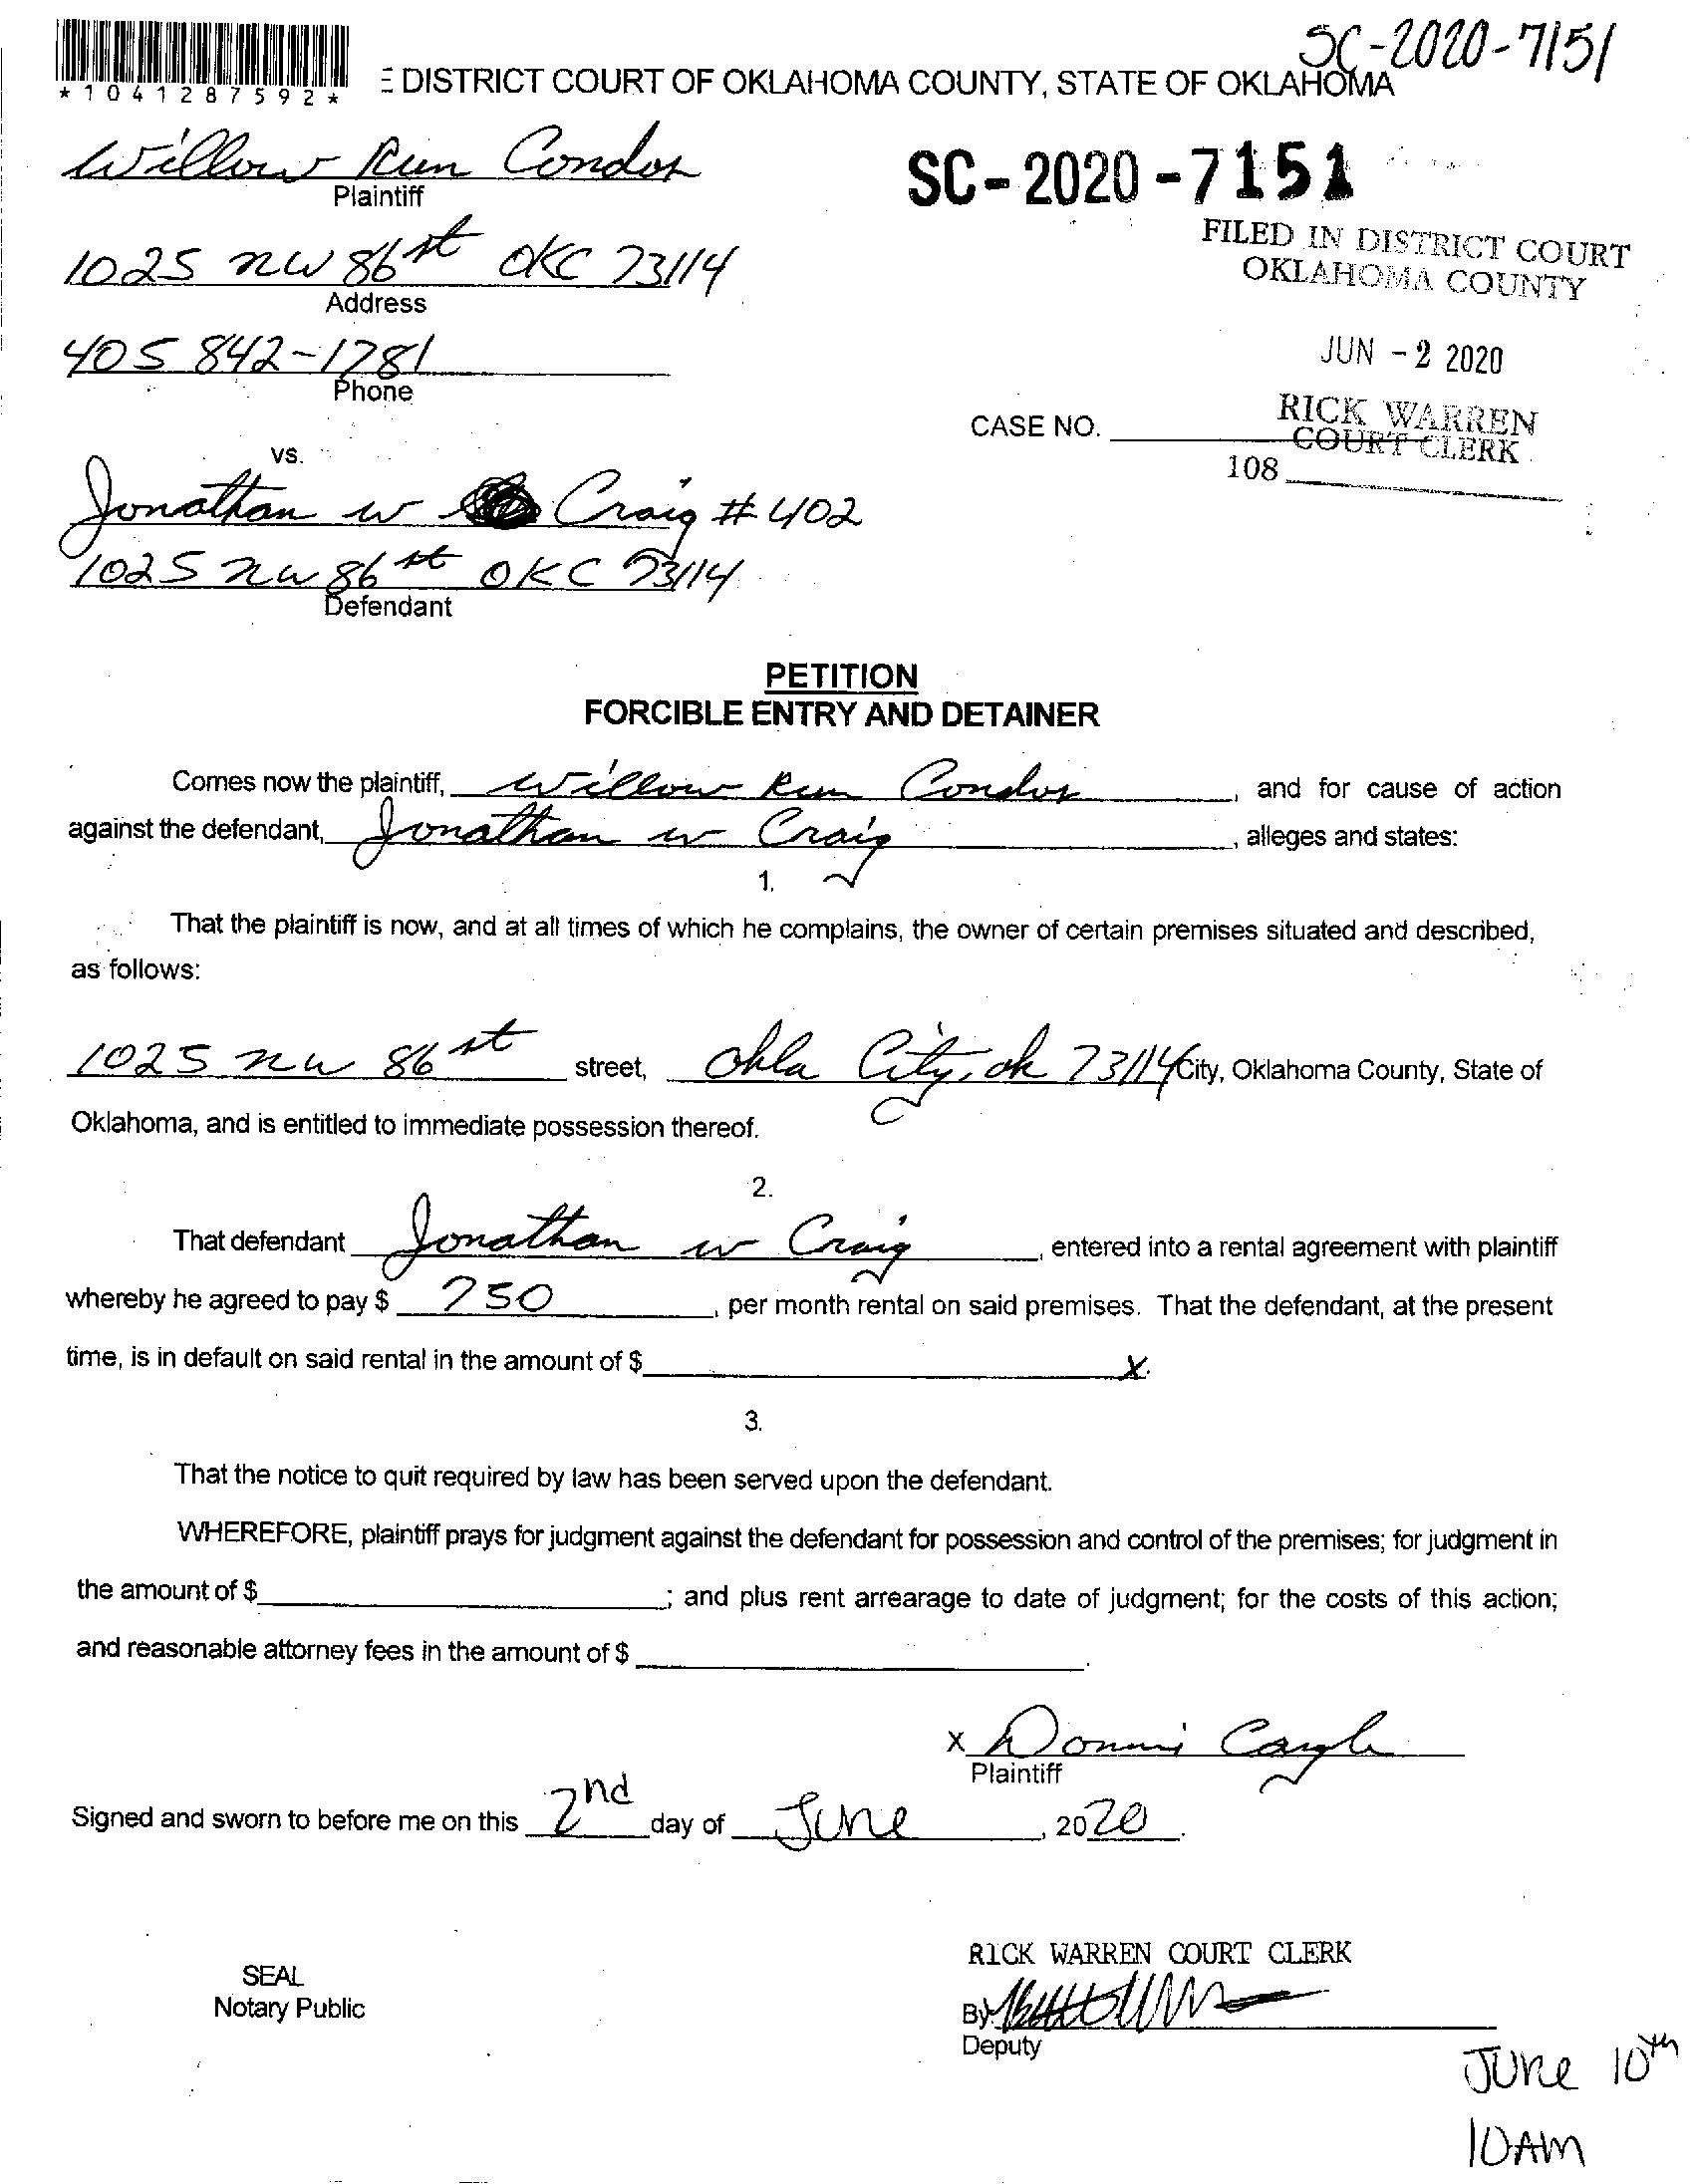 SC-2020-7151
*1041287592*
E DISTRICT COURT OF OKLAHOMA COUNTY, STATE OF OKLAHOMA
Willow Run Condos
Plaintiff
SC-2020-7151
1025 NW 86 st OKC 73114
Address
FILED IN DISTRICT COURT
OKLAHOMA COUNTY
405 842-1781
Phone
JUN -2 2020
RICK WARREN
COURT CLERK
CASE NO.
108
vs.
Jonathan W Craig #402
1025 NW 86 st OKC 73114
Defendant
PETITION
FORCIBLE ENTRY AND DETAINER
Comes now the plaintiff, Willow Run Condos, and for cause of action
against the defendant, Jonathan W Craig, alleges and states:
1.
That the plaintiff is now, and at all times of which he complains, the owner of certain premises situated and described,
as follows:
1025 NW 86 st street, Okla City, ok 73114 City, Oklahoma County, State of
Oklahoma, and is entitled to immediate possession thereof.
2.
That defendant Jonathan W Craig, entered into a rental agreement with plaintiff
whereby he agreed to pay $ 750, per month rental on said premises. That the defendant, at the present
time, is in default on said rental in the amount of $ X.
3.
That the notice to quit required by law has been served upon the defendant.
WHEREFORE, plaintiff prays for judgment against the defendant for possession and control of the premises; for judgment in
the amount of $ ; and plus rent arrearage to date of judgment; for the costs of this action;
and reasonable attorney fees in the amount of $ .
X Donni Cargle
Plaintiff
Signed and sworn to before me on this 2nd day of June, 2020.
RICK WARREN COURT CLERK
SEAL
Notary Public
By
Deputy
JUNE 10th
10AM